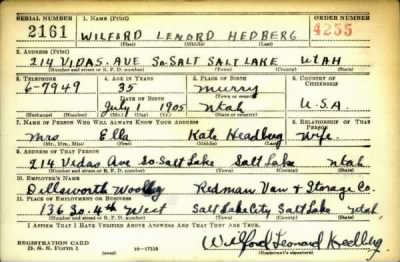 SERIAL NUMBER 1. NAME (Print) ORDER NUMBER
2161 WILFORD LENORD HEDBERG 4255
(First) (Middle) (Last)
2. ADDRESS (Print)
214 VIDAS. AVE SO. SALT SALT LAKE UTAH
(Number and street or R. F. D. number) (Town) (County) (State)
3. TELEPHONE 4. AGE IN YEARS 5. PLACE OF BIRTH 6. COUNTRY OF CITIZENSHIP
6-7949 35 Murry
DATE OF BIRTH (Town or county)
July 1 1905 Utah U.S.A.
(Mo.) (Day) (Yr.) (State or country)
7. NAME OF PERSON WHO WILL ALWAYS KNOW YOUR ADDRESS 8. RELATIONSHIP OF THAT PERSON
Mrs Ella Kate Headberg Wife.
(Mr., Mrs., Miss) (First) (Middle) (Last)
9. ADDRESS OF THAT PERSON
214 Vidas Ave So. Salt Lake Salt Lake Utah
(Number and street or R. F. D. number) (Town) (County) (State)
10. EMPLOYER'S NAME
Dillsworth Woolley Redman Van & Storage Co.
11. PLACE OF EMPLOYMENT OR BUSINESS
136 So. 4th West Salt Lake City Salt Lake Utah
(Number and street or R. F. D. number) (Town) (County) (State)
I AFFIRM THAT I HAVE VERIFIED ABOVE ANSWERS AND THAT THEY ARE TRUE.
REGISTRATION CARD
D. S. S. FORM 1 (over) 16-17105 Wilford Leonard Hedberg
(Registrant's signature)